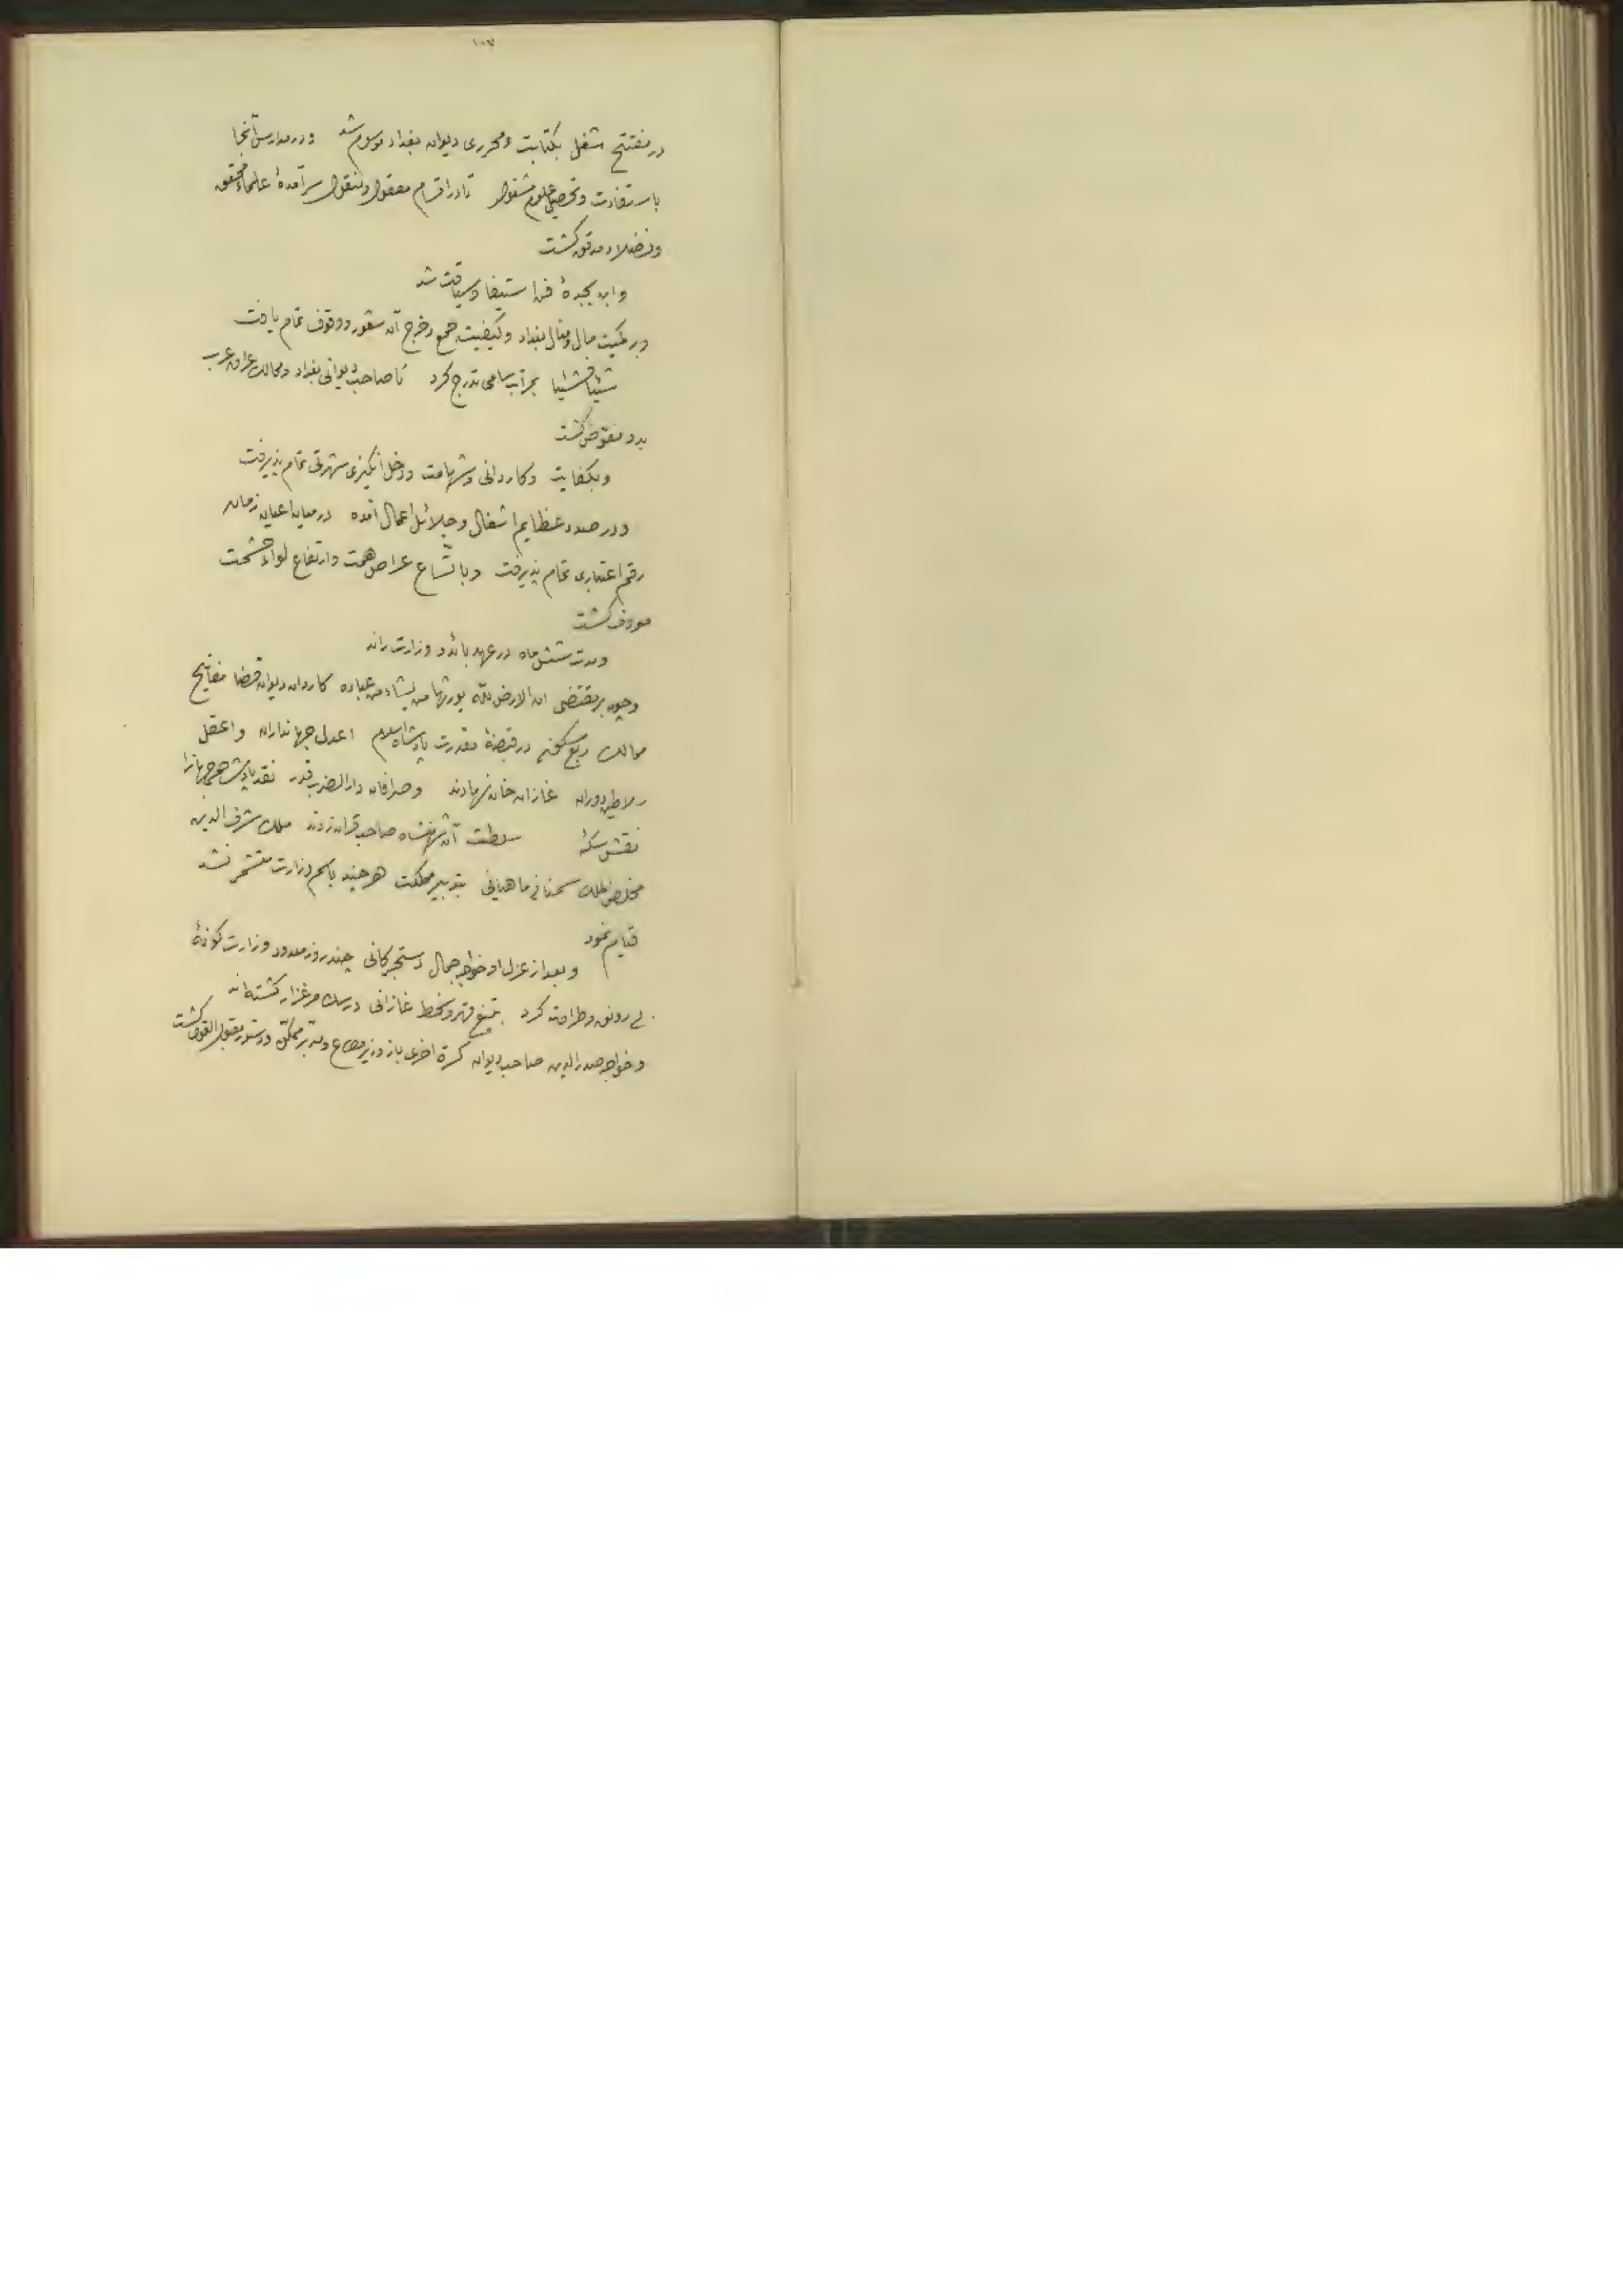 در مفتتح شغل بکتابت و محرری دیوان بغداد موسوم شد و در مدارس آنجا
باستفادت و تحصیل علوم مشغول تا در اقسام معقول و منقول سرآمدهٔ علماء محقق
و فضلاء مدقق کشت
و ابن بجدهٔ فن استیفا و سیاقت شد
و بر کمیت مال و منال بغداد و کیفیت جمع و خرج آن شعور و وقوف تمام یافت
شیئا فشیئا بمراتب سامی تدرج کرد تا صاحب دیوانی بغداد و ممالک عراق عرب
بدو مفوض کشت
و بکفایت و کاردانی و شهامت و دخل انکیزی شهرتی تمام پذیرفت
و در صدد عظایم اشغال و جلائل اعمال آمده در میان اعیان زمان
رقم اعتباری تمام پذیرفت و باتساع عراص همت و ارتفاع لواء حشمت
معروف کشت
و مدت شش ماه در عهد بائدو وزارت راند
و چون بر مقتضی ان الارض لله یورثها من یشاء من عباده کاردانان دیوان قضا مفاتیح
ممالک ربع مسکون در قبضهٔ مقدرت پادشاه اسلام اعدل جهانداران و اعقل
سلاطین دوران غازان خان نهادند و صرافان دار الضرب قدر نقد پادشاهی جهانرا
نقش سکهٔ سلطنت آن شهنشاه صاحب قران زدند ملک شرف الدین
مخلص الملک سمنانی بتدبیر مملکت هر چند باسم وزارت مشتهر نشد
قیام نمود
و بعد از عزل او خواجه جمال دستجردانی چند روز معدود وزارت کونهٔ
بی رونق و طراوت کرد بتیغ قهر و سخط غازانی در
و خواجه صدر الدین صاحب دیوان کرة اخری باز وزیر مطاع و مدبر ممکن و دستور مقبول القول کشت